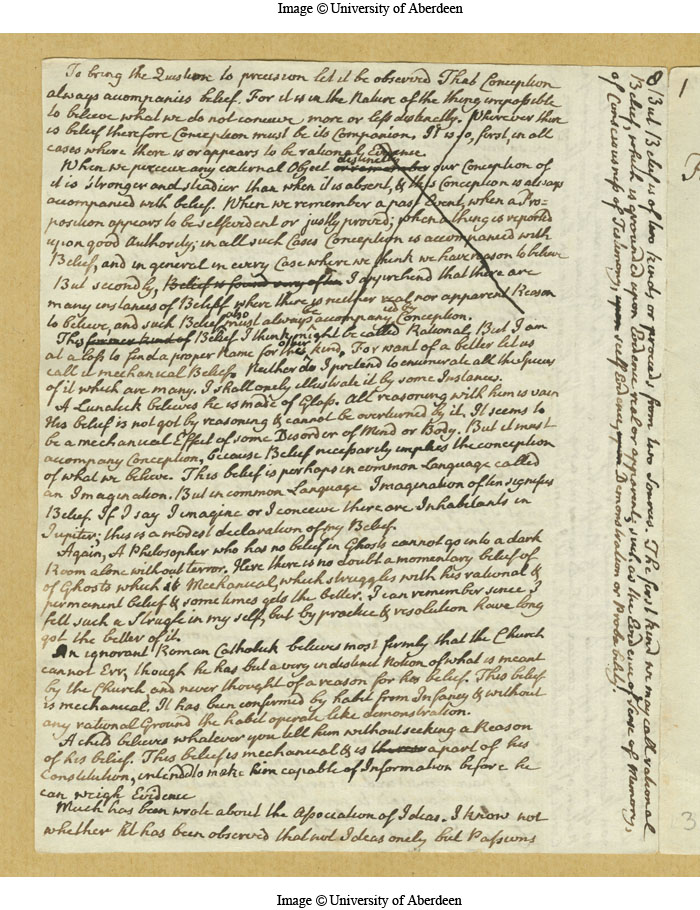 Image © University of Aberdeen
To bring the Question to precision let it be observed That Conception
always accompanies belief. For it is in the Nature of the thing impossible
to believe what we do not conceive more or less distinctly. Wherever there
is belief therefore Conception must be its Companion. It is so, first, in all
cases where there is or appears to be rational Evidence.
distinctly
When we perceive any external Object or remember our Conception of
it is stronger and steadier than when it is absent, & this Conception is always
accompanied with belief. When we remember a past Event, when a Pro=
position appears to be selfevident or justly proved, when a thing is reported
upon good Authority; in all such Cases Conception is accompanied with
Belief, and in general in every Case where we think we have reason to believe
But secondly, Belief is found very often I apprehend that there are
many instances of Belief where there is neither real nor apparent Reason
to believe, and such Belief also must always accompany Conception.
This former kind of Belief I think might be called Rational, But I am
at a loss to find a proper Name for the other kind. For want of a better let us
call it mechanical Belief. Neither do I pretend to enumerate all the Species
of it which are many. I shall onely illustrate it by some Instances.
A Lunatick believes he is made of Glass. All reasoning with him is vain
His belief is not got by reasoning & cannot be overturned by it, It seems to
be a mechanical Effect of some Disorder of Mind or Body. But it must
accompany Conception, because Belief necessarily implies the conception
of what we believe. This belief is perhaps in common Language called
an Imagination. But in common Language Imagination often signifies
Belief. If I say I imagine or I conceive there are Inhabitants in
Jupiter, this is a modest declaration of my Belief.
Again, A Philosopher who has no belief in Ghosts cannot go into a dark
Room alone without terror. Here there is no doubt a momentary belief of
of Ghosts which is Mechanical, which struggles with his rational &
permanent belief & sometimes gets the better. I can remember since I
felt such a Strugle in my self, but by practice & resolution have long
got the better of it.
An ignorant Roman Catholick believes most firmly that the Church
cannot Err, though he has but a very indistinct Notion of what is meant
by the Church and never thought of a reason for his belief. This belief
is mechanical, It has been confirmed by habit from Infancy & without
any rational Ground the habit operate like demonstration.
A child believes whatever you tell him without seeking a Reason
of his belief. This belief is mechanical & is a part of his
Constitution, intended to make him capable of Information before he
can weigh Evidence
Much has been wrote about the Association of Ideas. I know not
whether it has been observed that not Ideas onely but Passions
8 But Belief is of two kinds or proceeds from two Sources. The first kind we may call rational
Belief, which is grounded upon Evidence real or apparent; such as the Evidence of Sense of Memory,
of Consciousness of Testimony, upon self Evidence, upon Demonstration or Probability.
1
3
Image © University of Aberdeen